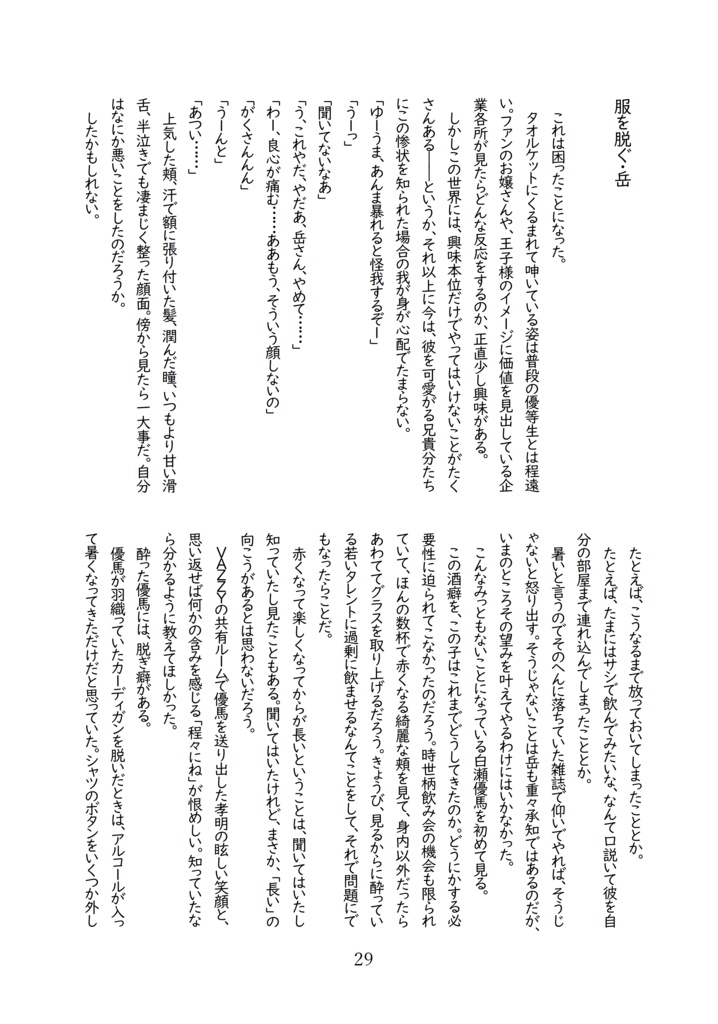 服を脱ぐ・岳
これは困ったことになった。
タオルケットにくるまれて呻いている姿は普段の優等生とは程遠
い。ファンのお嬢さんや、王子様のイメージに価値を見出している企
業各所が見たらどんな反応をするのか、正直少し興味がある。
しかしこの世界には、興味本位だけでやってはいけないことがたく
さんある――というか、それ以上に今は、彼を可愛がる兄貴分たち
にこの惨状を知られた場合の我が身が心配でたまらない。
「ゆーうま、あんま暴れると怪我するぞー」
「うーっ」
「聞いてないなあ」
「う、これやだ、やだぁ、岳さん、やめて……」
「わー、良心が痛む……ああもう、そういう顔しないの」
「がくさんんん」
「うーんと」
「あつい……」
上気した頬、汗で額に張り付いた髪、潤んだ瞳、いつもより甘い滑
舌、半泣きでも凄まじく整った顔面。傍から見たら一大事だ。自分
はなにか悪いことをしたのだろうか。
したかもしれない。
たとえば、こうなるまで放っておいてしまったこととか。
たとえば、たまにはサシで飲んでみたいな、なんて口説いて彼を自
分の部屋まで連れ込んでしまったこととか。
暑いと言うのでそのへんに落ちていた雑誌で仰いでやれば、そうじ
ゃないと怒り出す。そうじゃないことは岳も重々承知ではあるのだが、
いまのところその望みを叶えてやるわけにはいかなかった。
こんなみっともないことになっている白瀬優馬を初めて見る。
この酒癖を、この子はこれまでどうしてきたのか。どうにかする必
要性に迫られてこなかったのだろう。時世柄飲み会の機会も限られ
ていて、ほんの数杯で赤くなる綺麗な頬を見て、身内以外だったら
あわててグラスを取り上げるだろう。きょうび、見るからに酔ってい
る若いタレントに過剰に飲ませるなんてことをして、それで問題にで
もなったらことだ。
赤くなって楽しくなってからが長いということは、聞いてはいたし
知っていたし見たこともある。聞いてはいたけれど、まさか、「長い」の
向こうがあるとは思わないだろう。
VAZZYの共有ルームで優馬を送り出した孝明の眩しい笑顔と、
思い返せば何かの含みを感じる「程々にね」が恨めしい。知っていたな
ら分かるように教えてほしかった。
酔った優馬には、脱ぎ癖がある。
優馬が羽織っていたカーディガンを脱いだときは、アルコールが入っ
て暑くなってきただけだと思っていた。シャツのボタンをいくつか外し
29